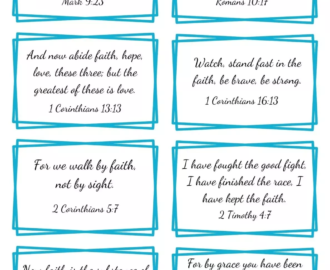 Mark 9:23
Romans 10:17
And now abide faith, hope,
love, these three; but the
greatest of these is love.
1 Corinthians 13:13
Watch, stand fast in the
faith, be brave, be strong.
1 Corinthians 16:13
For we walk by faith,
not by sight.
2 Corinthians 5:7
I have fought the good fight,
I have finished the race, I
have kept the faith.
2 Timothy 4:7
Now faith is the substance of
For by grace you have been